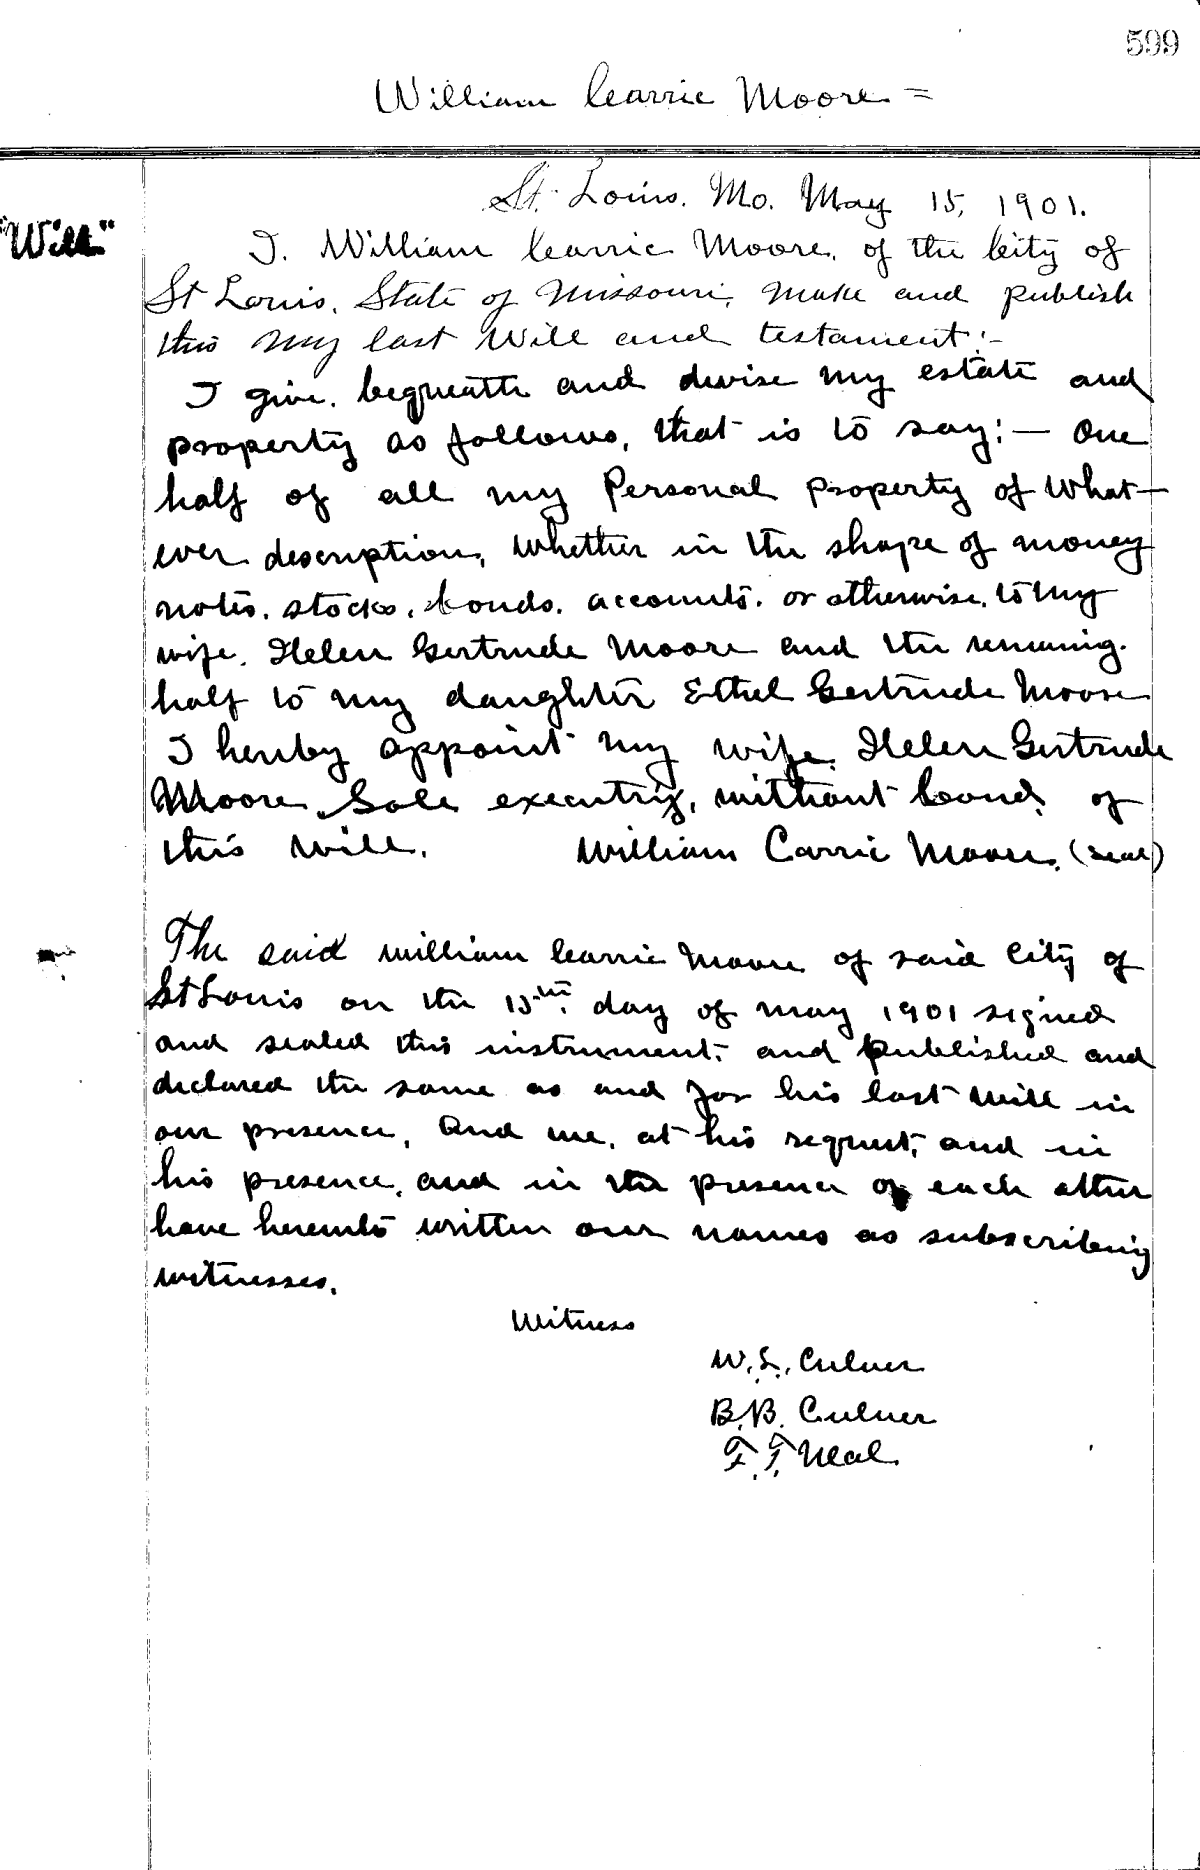 599
William Carrie Moore =
St. Louis. Mo. May 15, 1901.
"Will"
I. William Carrie Moore, of the City of
St Louis, State of Missouri, make and publish
this my last Will and testament:-
I give, bequeath and devise my estate and
property as follows, that is to say; — One
half of all my Personal property of What-
ever description, Whether in the shape of money
notes, stocks, bonds, accounts, or otherwise, to my
wife, Helen Gertrude Moore and the remaing
half to my daughter Ethel Gertrude Moore
I hereby appoint my wife, Helen Gertrude
Moore, Sole executrix, without bond, of
this will. William Carrie Moore. (Seal)
The said William Carrie Moore of said City of
St Louis on the 15th day of May 1901 signed
and sealed this instrument, and published and
declared the same as and for his last Will in
our presence, And we, at his request, and in
his presence, and in the presence of each other
have hereunto written our names as subscribing
witnesses.
Witness
W. L. Culver
B. B. Culver
F. F. Neal.